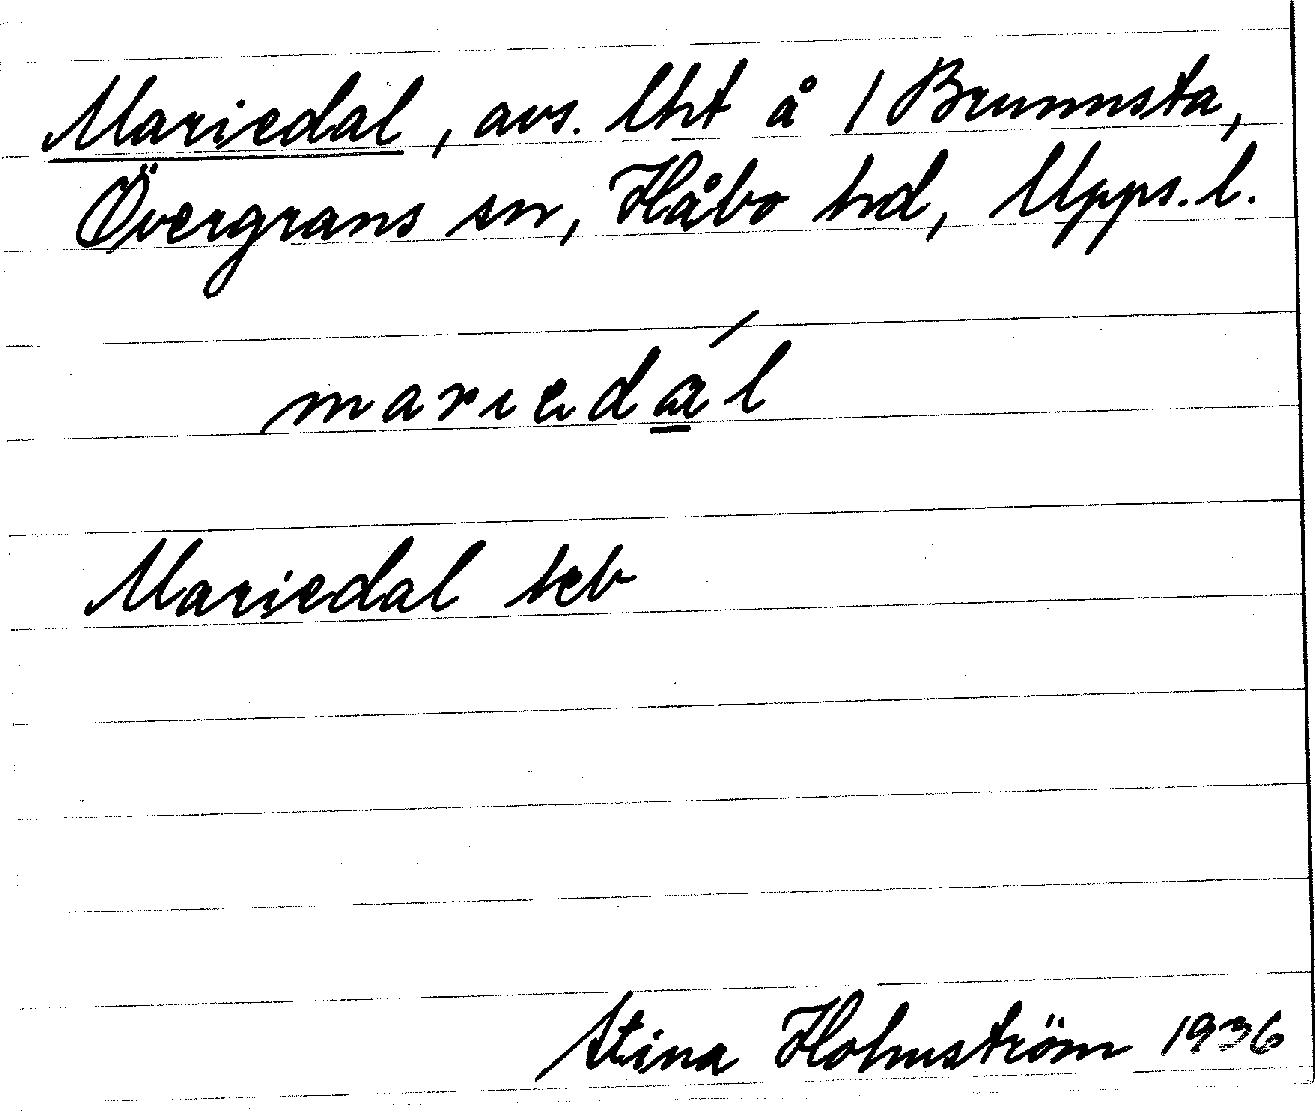 Mariedal, avs. lht å 1 Brunnsta,
Övergrans sn, Håbo hd, Upps. l.
marıedál
Mariedal keb
Stina Holmström 1936